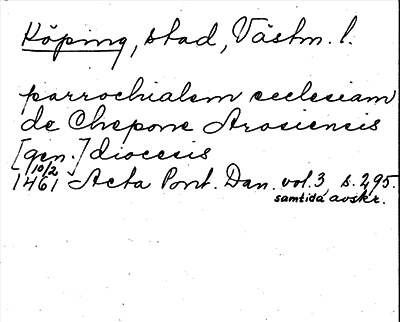 Köping, stad, Västm. l.
parrochialem ecclesiam
de Chepone Arosiensis
[gen.] diocesis
10/2
1461 Acta Pont. Dan. vol. 3, s. 295.
samtida avskr.